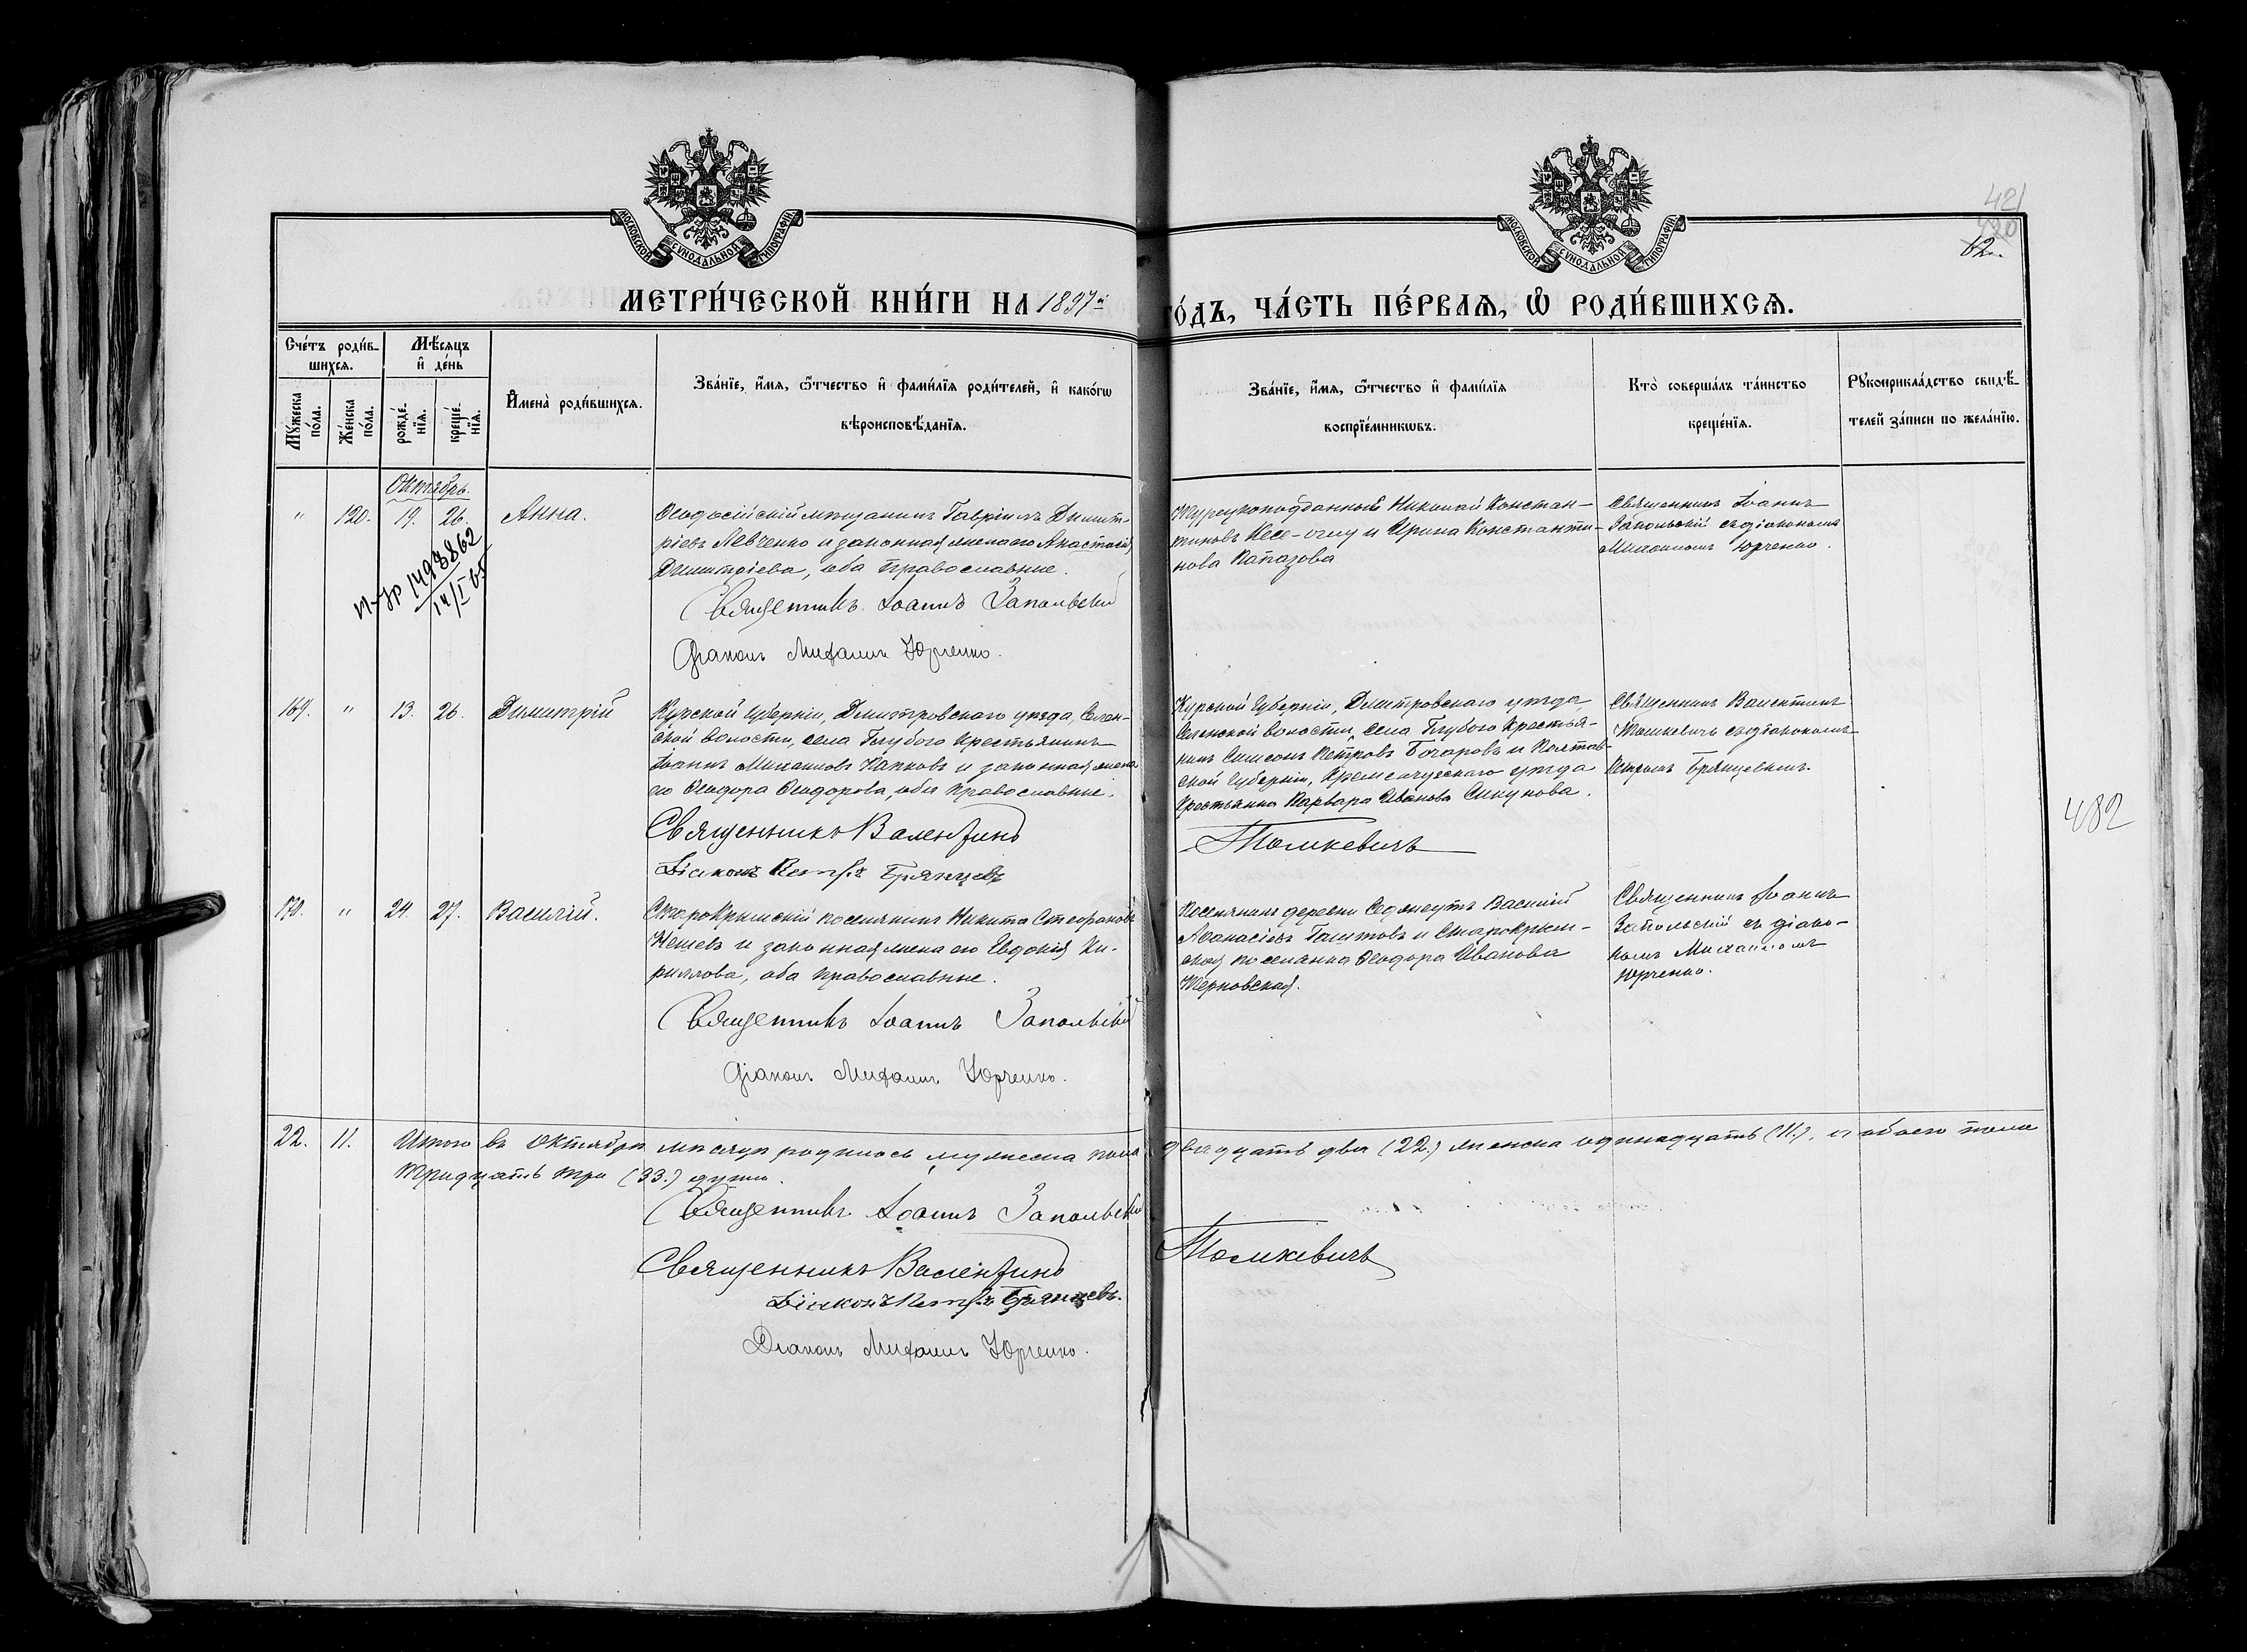 421
420
12
МОСКОВСКОЙ СѴНОДАЛЬНОЙ ТИПОГРАФІИ
МОСКОВСКОЙ СѴНОДАЛЬНОЙ ТИПОГРАФІИ
МЕТРИ́ЧЕСКОЙ КНИ́ГИ НА 1897й ГО́ДЪ, ЧА́СТЬ ПЕ́РВАѦ, Ѡ҆ РОДИ́ВШИХСѦ.
Сче́тъ роди́в-
шихсѧ.
Мꙋ́жеска по́ла.
Же́нска по́ла.
Мѣ́сѧцъ и҆ де́нь
рожде́-
нїѧ.
креще́-
нїѧ.
И҆мена̀ роди́вшихсѧ.
Зва́нїе, и҆́мѧ, ѻ҆́тчество и҆ фами́лїѧ роди́телей, и҆ како́гѡ
вѣроисповѣ́данїѧ.
Зва́нїе, и҆́мѧ, ѻ҆́тчество и҆ фами́лїѧ
воспрїе́мникѡвъ.
Кто̀ соверша́лъ та́инство
креще́нїѧ.
Рꙋкоприкла́дство свидѣ́-
телей за́писи по жела́нїю.
Октябрь.
" 120. 19. 26. Анна.
Ѳеодосійскій мѣщанинъ Гавріилъ Димит-
ріевъ Левченко и законная жена его Анастасія
Димитріева, оба православные.
Священникъ Іоаннъ Запольскій
Діаконъ Михаилъ Юрченко.
Турецкоподданный Николай Констан-
тиновъ Кесе-оглу и Ирина Константи-
нова Капазова
Священникъ Іоаннъ
Запольскій съ діакономъ
Михаиломъ Юрченко.
1498862
14/I 65
169. " 13. 26. Димитрій
Курской губерніи, Дмитровскаго уѣзда,
ской волости, села Глубого крестьянинъ
Іоаннъ Михаиловъ Капковъ и законная жена
его Ѳеодора Ѳеодорова, оба православные.
Священникъ Валентинъ Томкевичъ
Діаконъ Петръ Брянцевъ
Курской губерніи, Дмитровскаго уѣзда,
волости, села Глубого крестья-
нинъ Симеонъ Петровъ Бочаровъ и Полтав-
ской губерніи, Кременчугскаго уѣзда
крестьянка Варвара Иванова Сикунова.
Священникъ Валентинъ
Томкевичъ съ діакономъ
Петромъ Брянцевымъ.
482
170. " 24. 27. Василій.
Старокрымскій поселянинъ Никита Стефановъ
Кешевъ и законная жена его Евдокія Ки-
риллова, оба православные.
Священникъ Іоаннъ Запольскій
Діаконъ Михаилъ Юрченко.
Поселянинъ деревни Василій
Аѳанасіевъ Гаштовъ и Старокрым-
ская поселянка Ѳеодора Иванова
Терновская.
Священникъ Іоаннъ
Запольскій съ діако-
номъ Михаиломъ
Юрченко.
22. 11. Итого въ Октябрѣ мѣсяцѣ родилось мужеска пола двадцать два (22.) женска одинадцать (11.), и обоего пола
тридцать три (33.) души.
Священникъ Іоаннъ Запольскій
Священникъ Валентинъ Томкевичъ
Діаконъ Петръ Брянцевъ.
Діаконъ Михаилъ Юрченко.